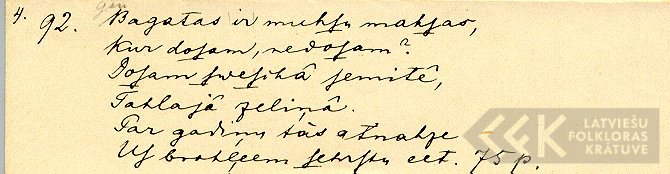 4. 92. Bagatas ir muhſu mahſas,
Kur doſam, nedoſam?
Doſam ſweſchâ ſemitê,
Tahlajâ zeliņâ.
Par gadiņu tâs atnahze
Uſ brahļeem ſehrſtu eet. 75 p.
LATVIEŠU
FOLKLORAS
KRĀTUVE